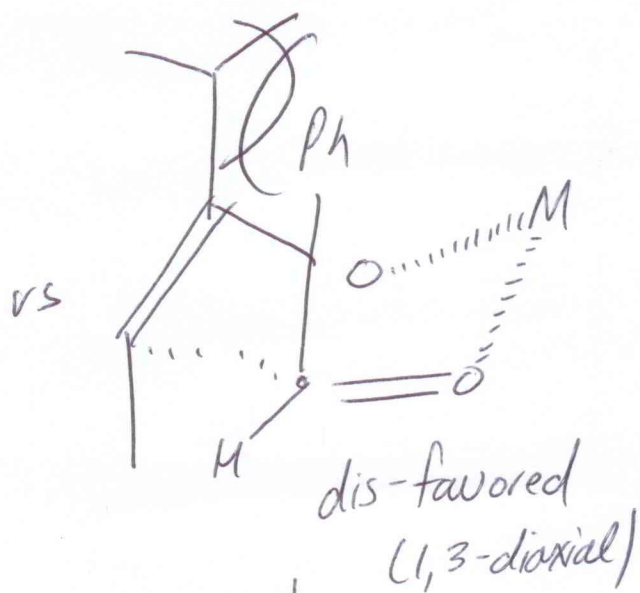 Ph
M
O
vs
O
H
dis-favored
(1,3-diaxial)